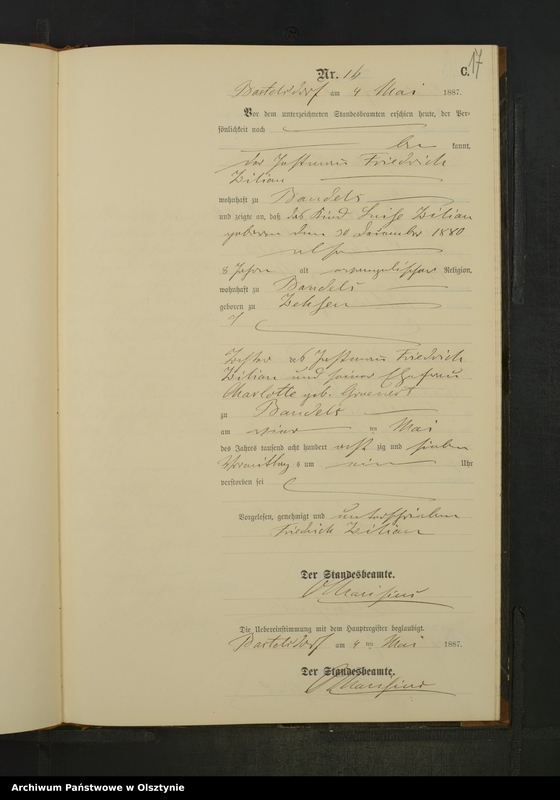 17
Nr. 14 C.
Bartelsdorf am 4 Mai 1887.
Vor dem unterzeichneten Standesbeamten erschien heute, der Per-
sönlichkeit nach
be kannt,
der Instmann Friedrich
Zilian
wohnhaft zu Bandels
und zeigte an, daß das Kind Luise Zilian
geboren den 30 Dezember 1880
also
Jahre alt evangelischer Religion,
wohnhaft zu Bandels
geboren zu
Tochter des Instmann Friedrich
Zilian und seiner Ehefrau
Charlotte geb. Grunert
zu Bandels
am vier ten Mai
des Jahres tausend acht hundert acht zig und sieben
Vormittag s um Uhr
verstorben sei
Vorgelesen, genehmigt und unterschrieben
Friedrich Zilian
Der Standesbeamte.
Die Uebereinstimmung mit dem Hauptregister beglaubigt.
Bartelsdorf am 4 ten Mai 1887.
Der Standesbeamte.
Archiwum Państwowe w Olsztynie